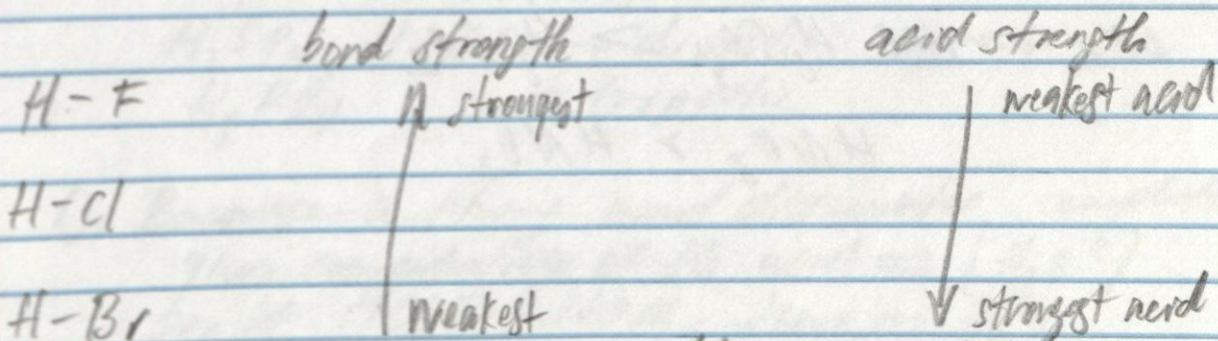 bond strength acid strength
H-F strongest weakest acid
H-Cl
H-Br weakest strongest acid